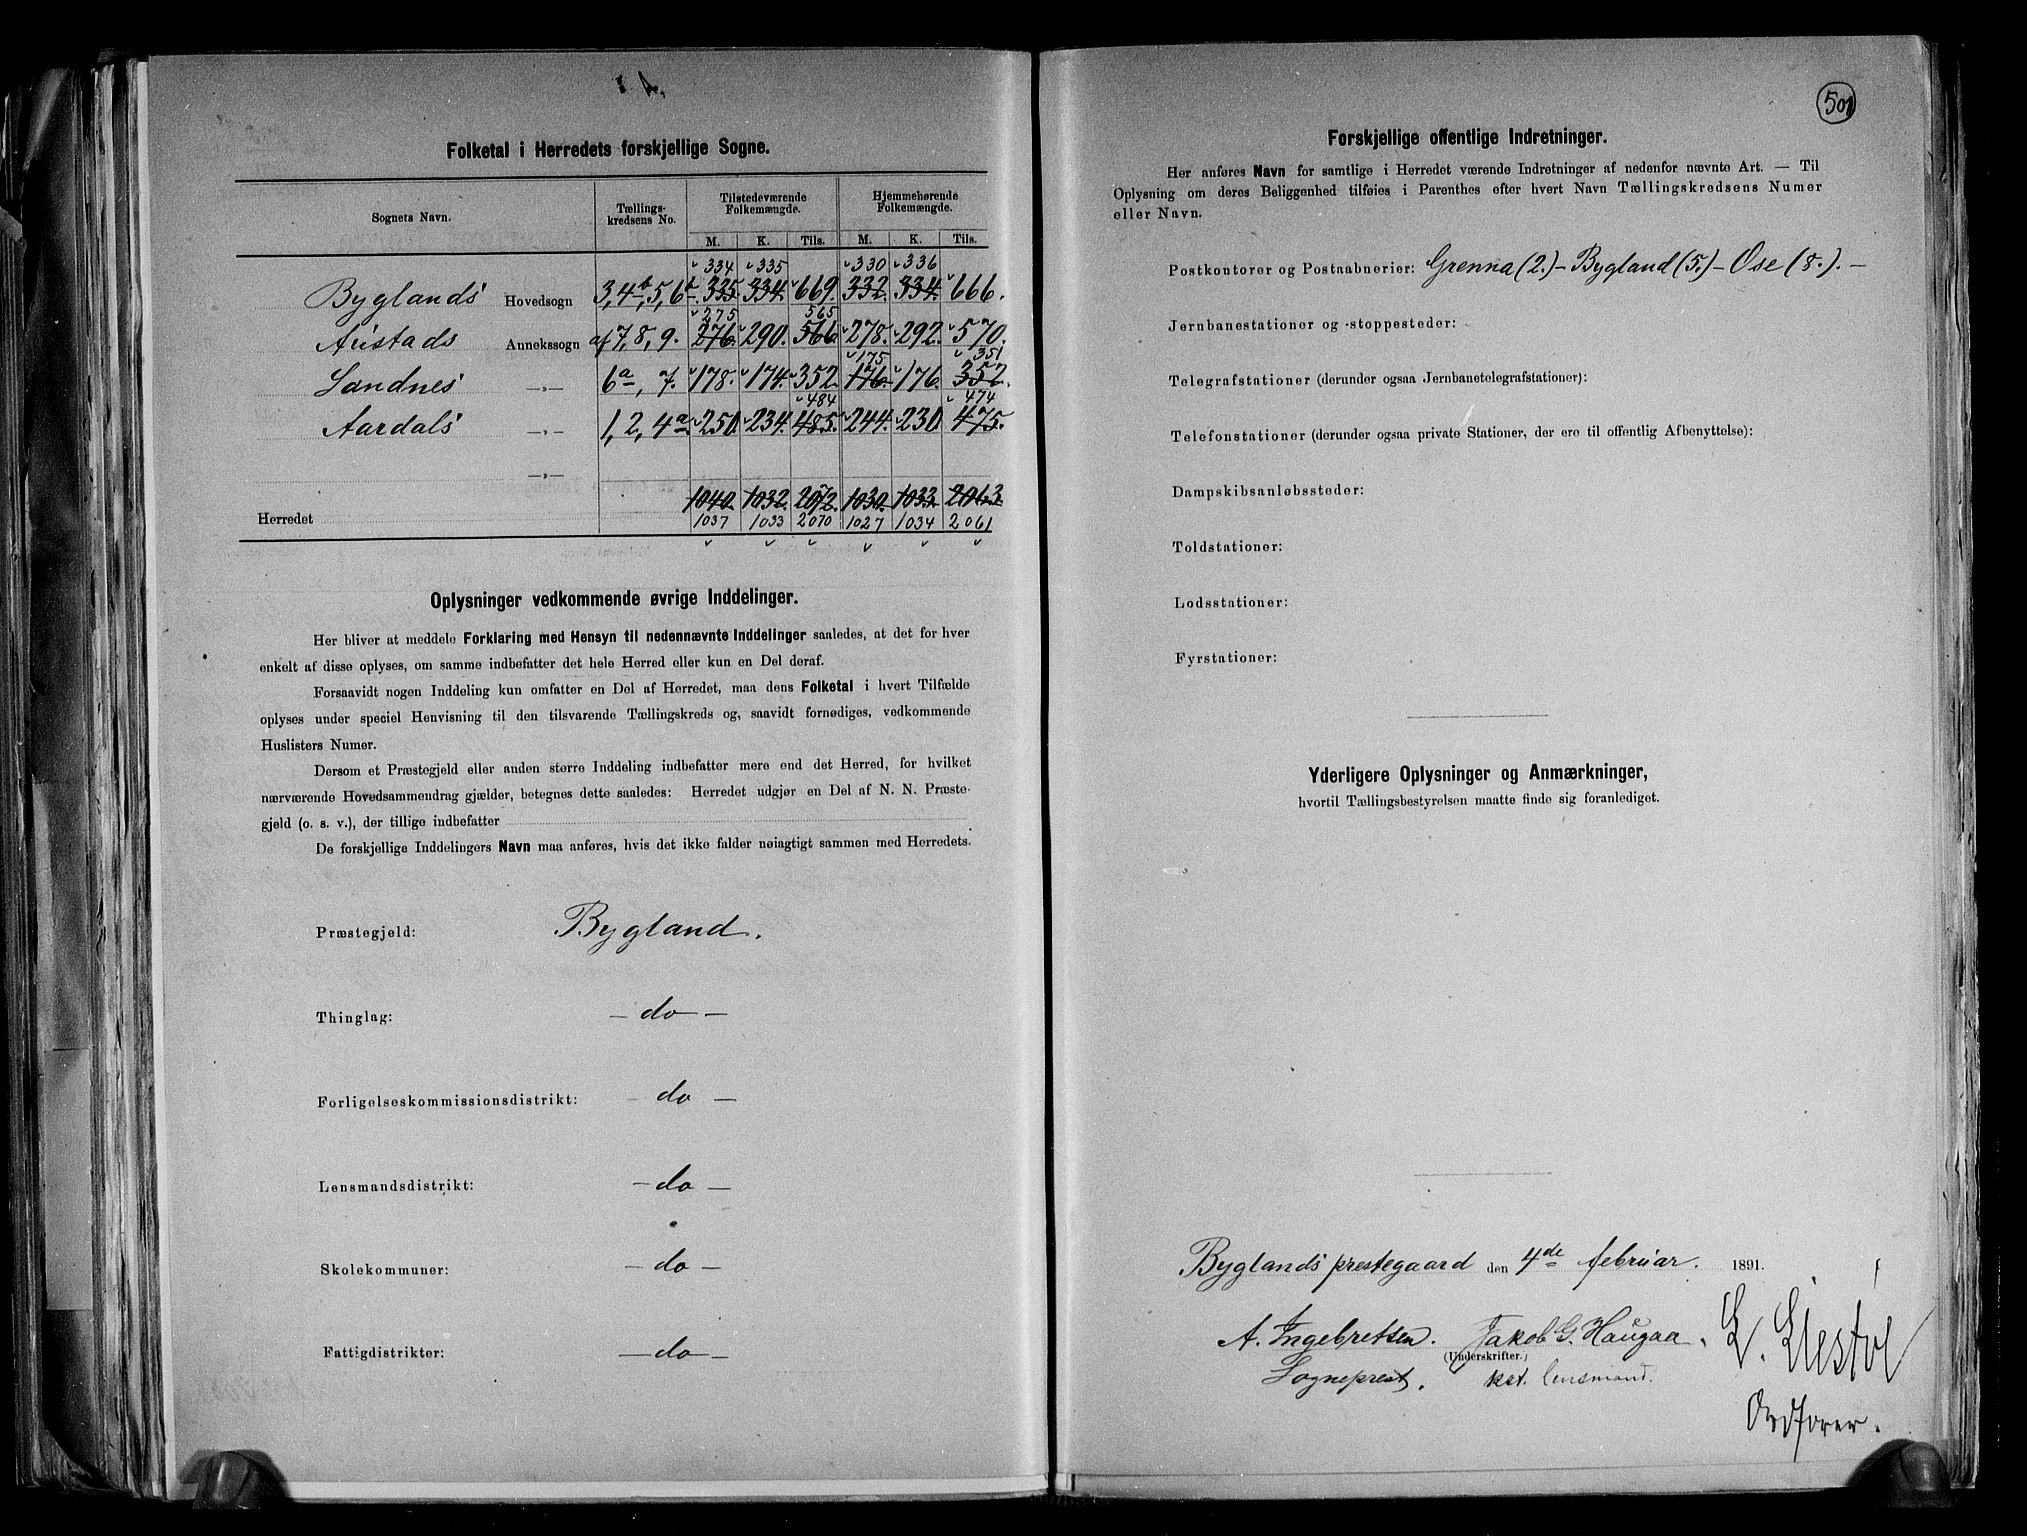 Folketal i Herredets forskjellige Sogne.
Sognets Navn. Tællings-kredsens No. Tilstedeværende Folkemængde. Hjemmehørende Folkemængde.
M. K. Tils. M. K. Tils.
334 335 330 336
Byglands Hovedsogn 3, 4b, 5, 6b. 335 334 669. 332. 334. 666.
275 565
Austads Annekssogn af 7, 8, 9. 276. 290. 566 278. 292. 570.
175 351
Sandnes —„— 6a, 7. 178. 174. 352. 176. 176. 352.
484 474
Aardals —„— 1, 2, 4a 250. 234. 485. 244. 230 475.
—„—
1040. 1032. 2072. 1030. 1033. 2063
Herredet 1037 1033 2070 1027 1034 2061
Oplysninger vedkommende øvrige Inddelinger.
Her bliver at meddele Forklaring med Hensyn til nedennævnte Inddelinger saaledes, at det for hver
enkelt af disse oplyses, om samme indbefatter det hele Herred eller kun en Del deraf.
Forsaavidt nogen Inddeling kun omfatter en Del af Herredet, maa dens Folketal i hvert Tilfælde
oplyses under speciel Henvisning til den tilsvarende Tællingskreds og, saavidt fornødiges, vedkommende
Huslisters Numer.
Dersom et Præstegjeld eller anden større Inddeling indbefatter mere end det Herred, for hvilket
nærværende Hovedsammendrag gjælder, betegnes dette saaledes: Herredet udgjør en Del af N. N. Præste-
gjeld (o. s. v.), der tillige indbefatter
De forskjellige Inddelingers Navn maa anføres, hvis det ikke falder nøiagtigt sammen med Herredets.
Præstegjeld: Bygland.
Thinglag: — do —
Forligelseskommissionsdistrikt: — do —
Lensmandsdistrikt: — do —
Skolekommuner: — do —
Fattigdistrikter: — do —
501
Forskjellige offentlige Indretninger.
Her anføres Navn for samtlige i Herredet værende Indretninger af nedenfor nævnte Art. — Til
Oplysning om deres Beliggenhed tilføies i Parenthes efter hvert Navn Tællingskredsens Numer
eller Navn.
Postkontorer og Postaabnerier: Grenna (2.) — Bygland (5.) — Ose (8.). —
Jernbanestationer og -stoppesteder:
Telegrafstationer (derunder ogsaa Jernbanetelegrafstationer):
Telefonstationer (derunder ogsaa private Stationer, der ere til offentlig Afbenyttelse):
Dampskibsanløbssteder:
Toldstationer:
Lodsstationer:
Fyrstationer:
Yderligere Oplysninger og Anmærkninger,
hvortil Tællingsbestyrelsen maatte finde sig foranlediget.
Byglands prestegaard den 4de februar. 1891.
A. Ingebretsen. Jakob G. Haugaa. L. Liestøl
(Underskrifter.)
Sogneprest. kst. lensmand.
Ordfører.